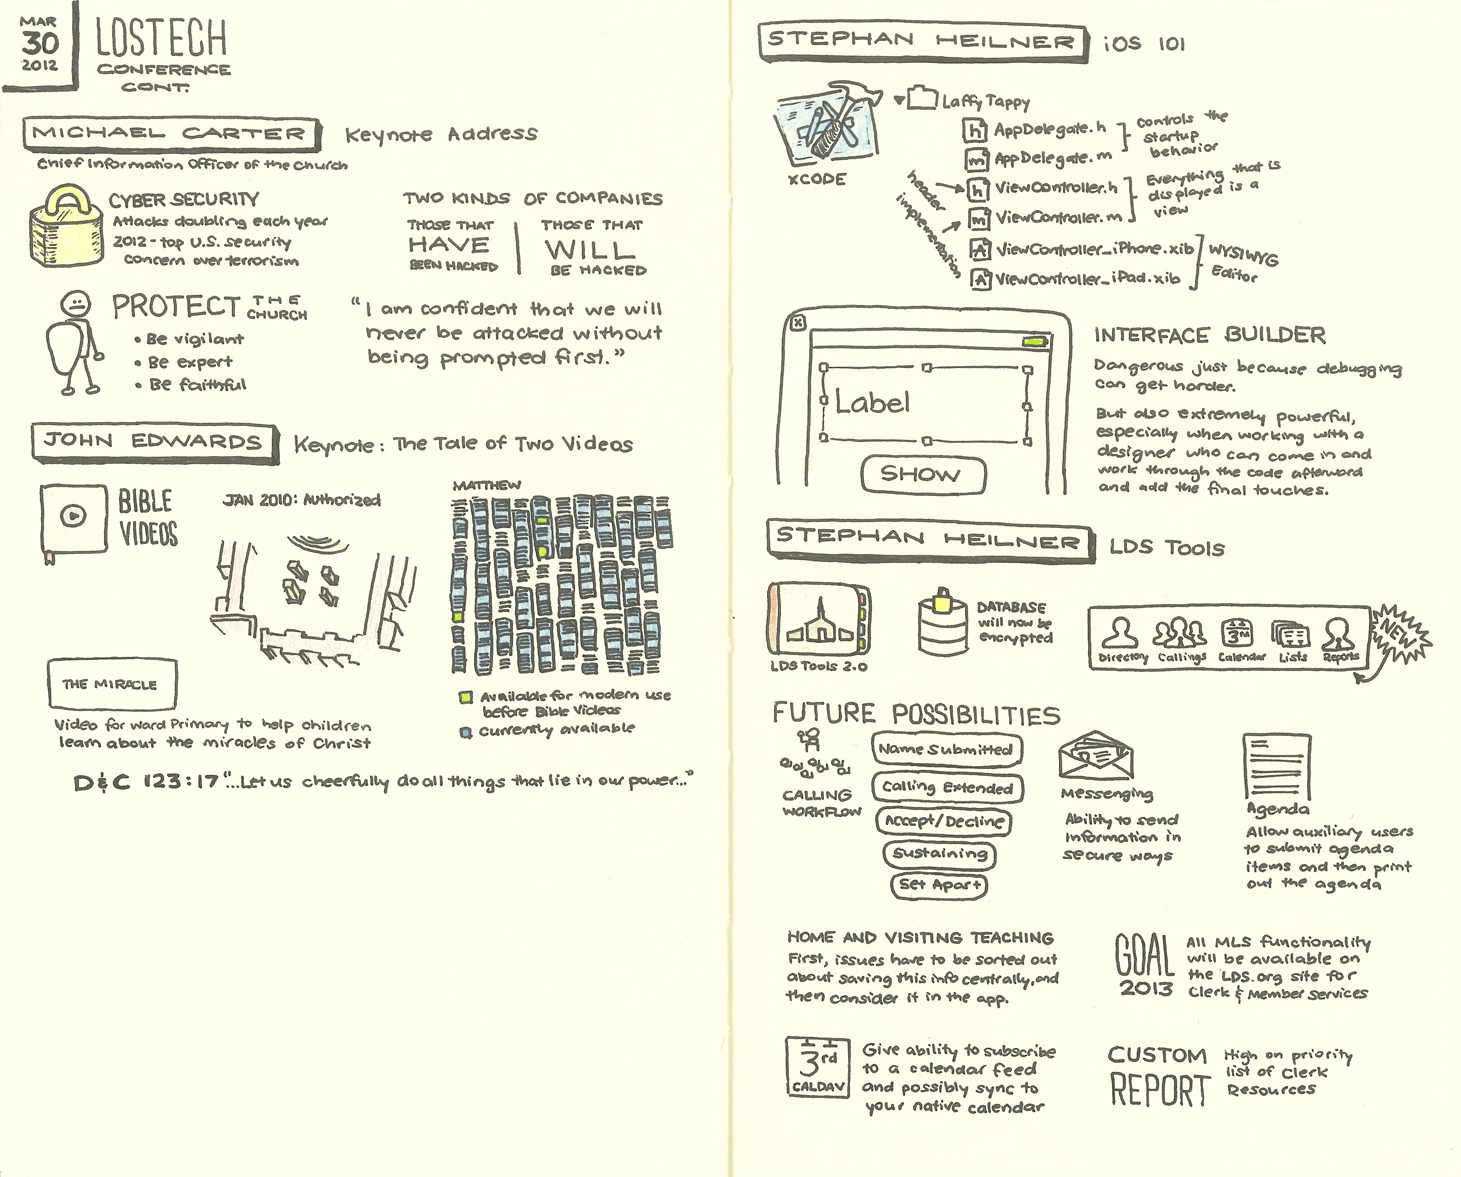 MAR
30
2012
LDSTECH
CONFERENCE
CONT.
MICHAEL CARTER Keynote Address
Chief Information Officer of the Church
CYBER SECURITY
Attacks doubling each year
2012 - top U.S. security
concern over terrorism
TWO KINDS OF COMPANIES
THOSE THAT
HAVE
BEEN HACKED
THOSE THAT
WILL
BE HACKED
PROTECT THE
CHURCH
• Be vigilant
• Be expert
• Be faithful
"I am confident that we will
never be attacked without
being prompted first."
JOHN EDWARDS Keynote: The Tale of Two Videos
BIBLE
VIDEOS
JAN 2010: Authorized
MATTHEW
Available for modern use
before Bible Videos
Currently available
THE MIRACLE
Video for ward Primary to help children
learn about the miracles of Christ
D&C 123:17 "...Let us cheerfully do all things that lie in our power..."
STEPHAN HEILNER iOS 101
XCODE
Laffy Tappy
h AppDelegate.h
m AppDelegate.m
controls the
startup
behavior
h ViewController.h
m ViewController.m
Everything that is
displayed is a
view
header
implementation
ViewController_iPhone.xib
ViewController_iPad.xib
WYSIWYG
Editor
x
Label
SHOW
INTERFACE BUILDER
Dangerous just because debugging
can get harder.
But also extremely powerful,
especially when working with a
designer who can come in and
work through the code afterward
and add the final touches.
STEPHAN HEILNER LDS Tools
LDS Tools 2.0
DATABASE
will now be
encrypted
3RD
Directory Callings Calendar Lists Reports
NEW
FUTURE POSSIBILITIES
CALLING
WORKFLOW
Name Submitted
Calling Extended
Accept/Decline
Sustaining
Set Apart
Messenging
Ability to send
information in
secure ways
Agenda
Allow auxiliary users
to submit agenda
items and then print
out the agenda
HOME AND VISITING TEACHING
First, issues have to be sorted out
about saving this info centrally, and
then consider it in the app.
GOAL
2013
All MLS functionality
will be available on
the LDS.org site for
Clerk & Member Services
3rd
CALDAV
Give ability to subscribe
to a calendar feed
and possibly sync to
your native calendar
CUSTOM
REPORT
High on priority
list of Clerk
Resources